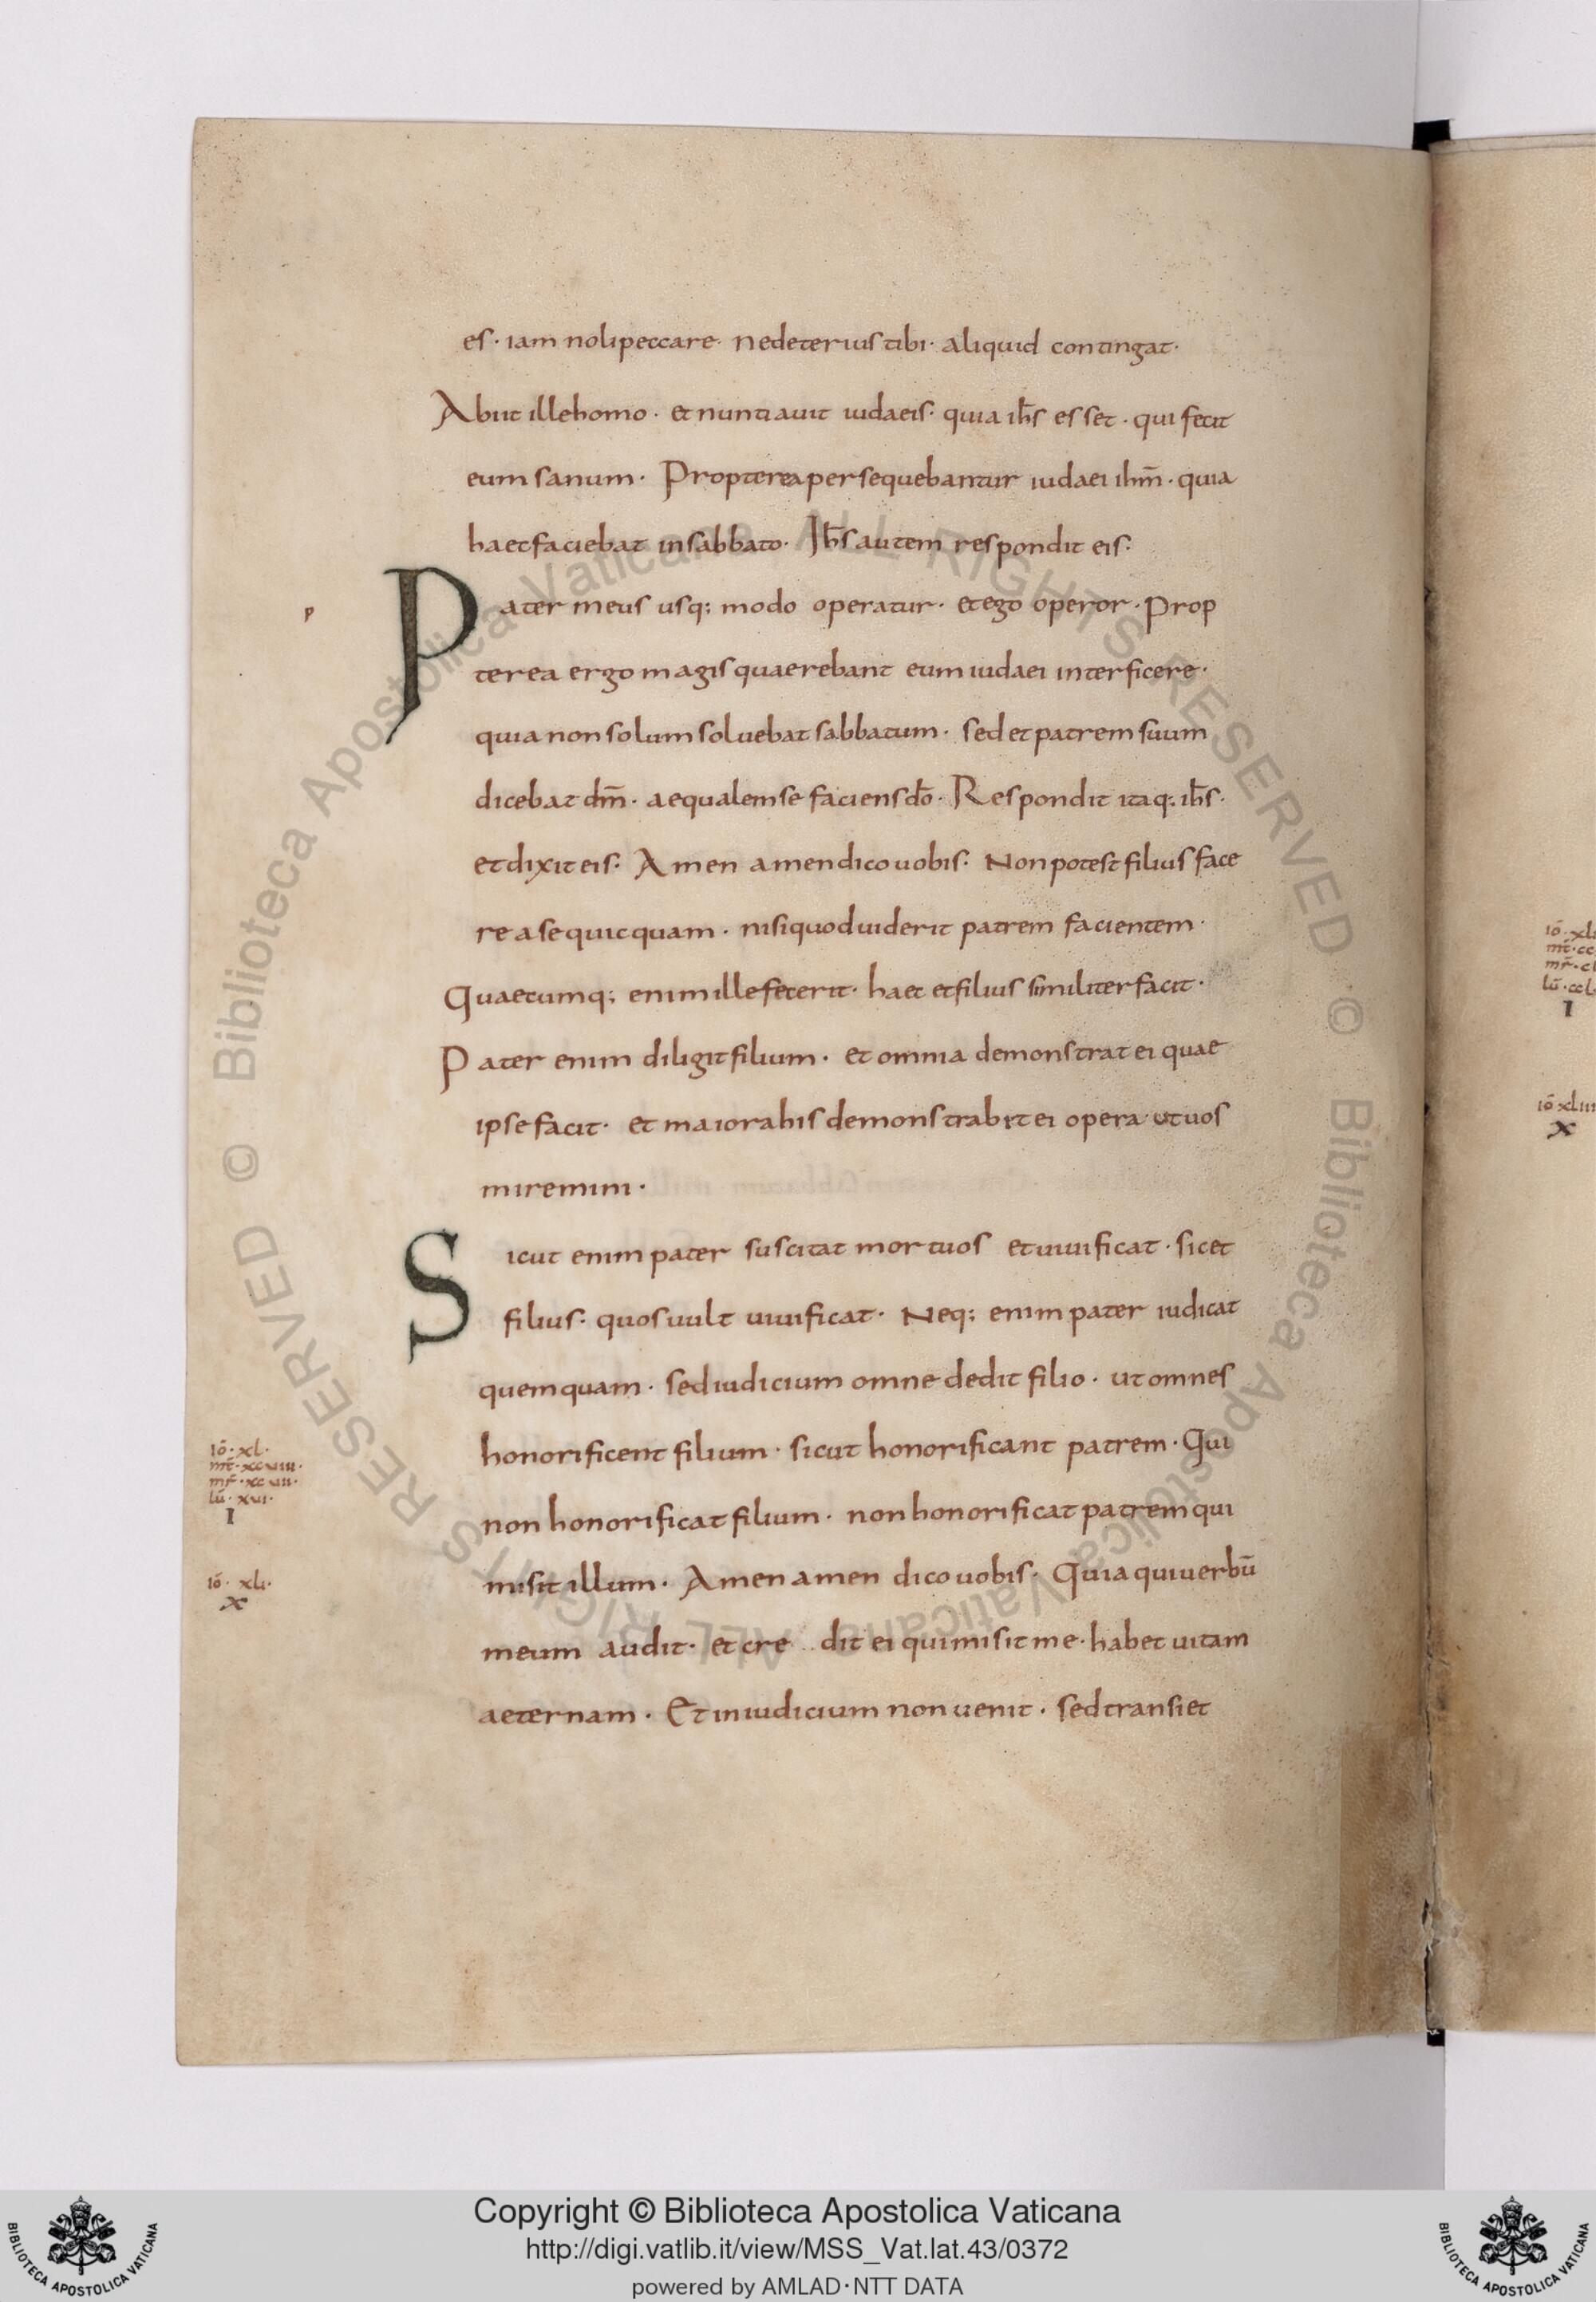 es· iam noli peccare· ne deterius tibi· aliquid contingat·
Abiit ille homo· et nuntiavit iudaeis· quia ih̅s esset· qui fecit
eum sanum· Propterea persequebantur iudaei ihm̅· quia
haec faciebat in sabbato· Ih̅s autem respondit eis·
p
Pater meus usq; modo operatur· et ego operor· Prop
terea ergo magis quaerebant eum iudaei interficere·
quia non solum soluebat sabbatum· sed et patrem suum
dicebat dm̅· aequalem se faciens do̅· Respondit itaq; ih̅s·
et dixit eis· Amen amen dico uobis· Non potest filius face
re a se quicquam· nisi quod uiderit patrem facientem·
Quaecumq; enim ille fecerit· haec et filius similiter facit·
Pater enim diligit filium· et omnia demonstrat ei quae
ipse facit· et maiora his demonstrabit ei opera· ut uos
miremini·
Sicut enim pater suscitat mortuos et uiuificat· sic et
filius· quos uult uiuificat· Neq; enim pater iudicat
quemquam· sed iudicium omne dedit filio· ut omnes
honorificent filium· sicut honorificant patrem· Qui
non honorificat filium· non honorificat patrem qui
misit illum· Amen amen dico uobis· Quia qui uerbū
meum audit· et cre dit ei qui misit me· habet uitam
aeternam· Et in iudicium non uenit· sed transiet
iō· xl·
mt̅· xcviii·
mr̅· xcvii·
lū· xvi·
I
iō· xli·
x
Copyright © Biblioteca Apostolica Vaticana
http://digi.vatlib.it/view/MSS_Vat.lat.43/0372
powered by AMLAD·NTT DATA
BIBLIOTECA APOSTOLICA VATICANA
BIBLIOTECA APOSTOLICA VATICANA
© Biblioteca Apostolica Vaticana ALL RIGHTS RESERVED
© Biblioteca Apostolica Vaticana ALL RIGHTS RESERVED